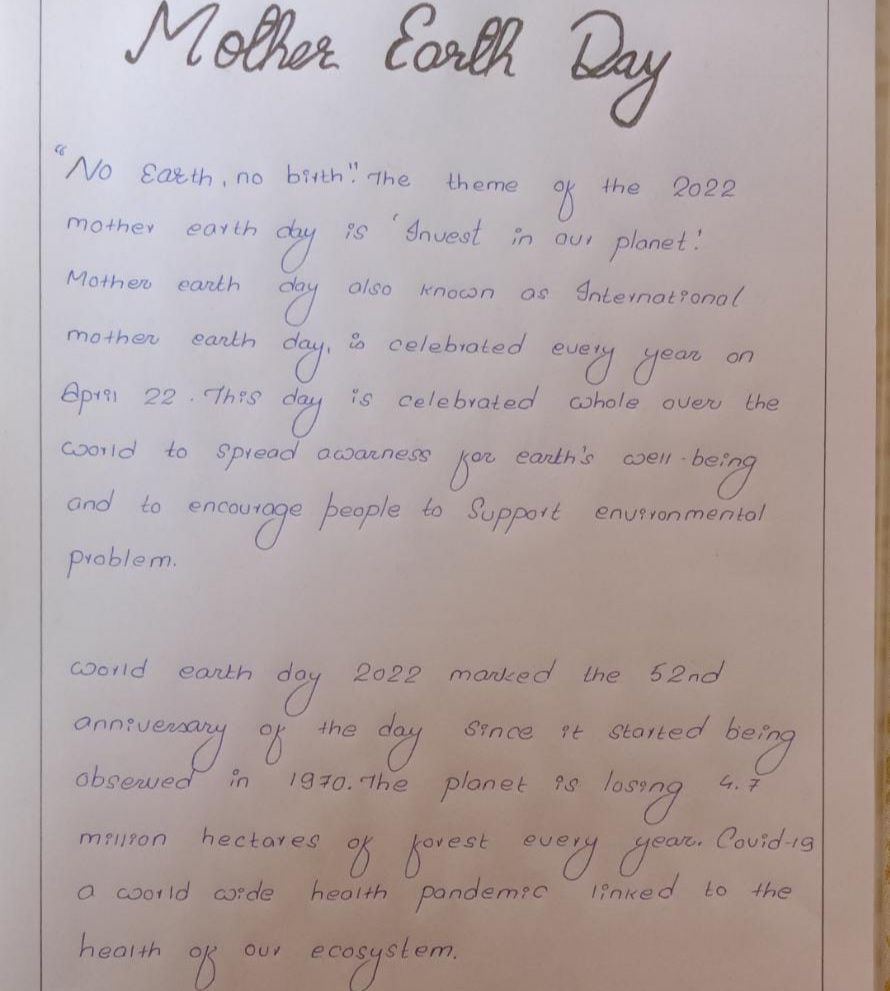 Mother Earth Day
"No Earth, no birth". The theme of the 2022
mother earth day is 'Invest in our planet.'
Mother earth day also known as International
mother earth day, is celebrated every year on
April 22. This day is celebrated whole over the
world to spread awarness for earth's well-being
and to encourage people to Support environmental
problem.
world earth day 2022 marked the 52nd
anniversary of the day since it started being
observed in 1970. The planet is losing 4.7
million hectares of forest every year. Covid-19
a world wide health pandemic linked to the
health of our ecosystem.